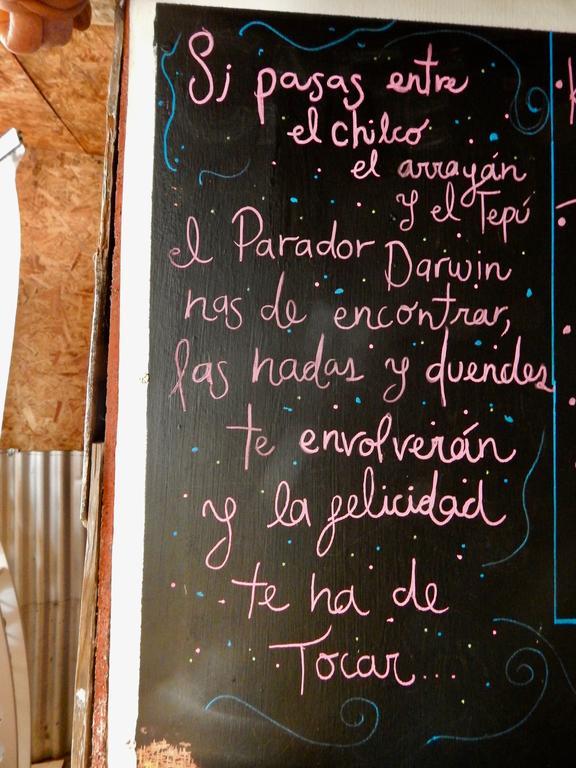 Si pasas entre
el chilco
el arrayán
y el Tepú
el Parador Darwin
has de encontrar,
las hadas y duendes
te envolverán
y la felicidad
te ha de
Tocar...